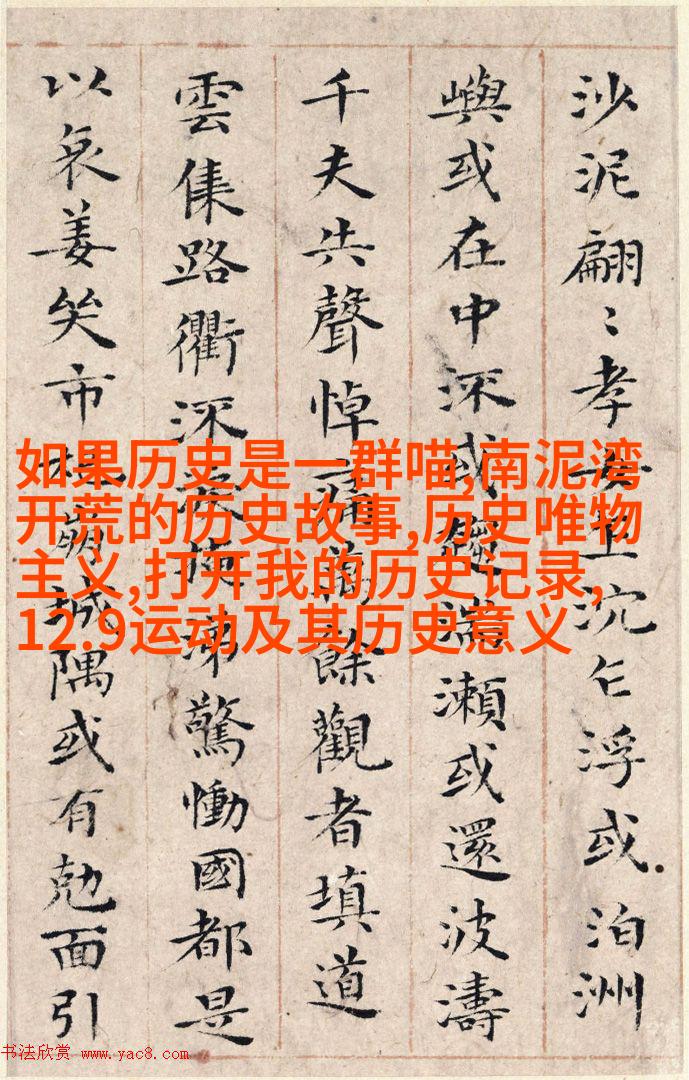 沙泥翩〻孝女沉浮或泊洲
嶼或在中深或趨湍瀨或還波濤
千夫失聲悼痛萬餘觀者填道
雲集路衢涕驚慟國都是
以哀姜哭市杞崩城隅或有剋面引
如果历史是一群喵,南泥湾
开荒的历史故事,历史唯物
主义,打开我的历史记录,
12.9运动及其历史意义
书法欣赏 www.yac8.com